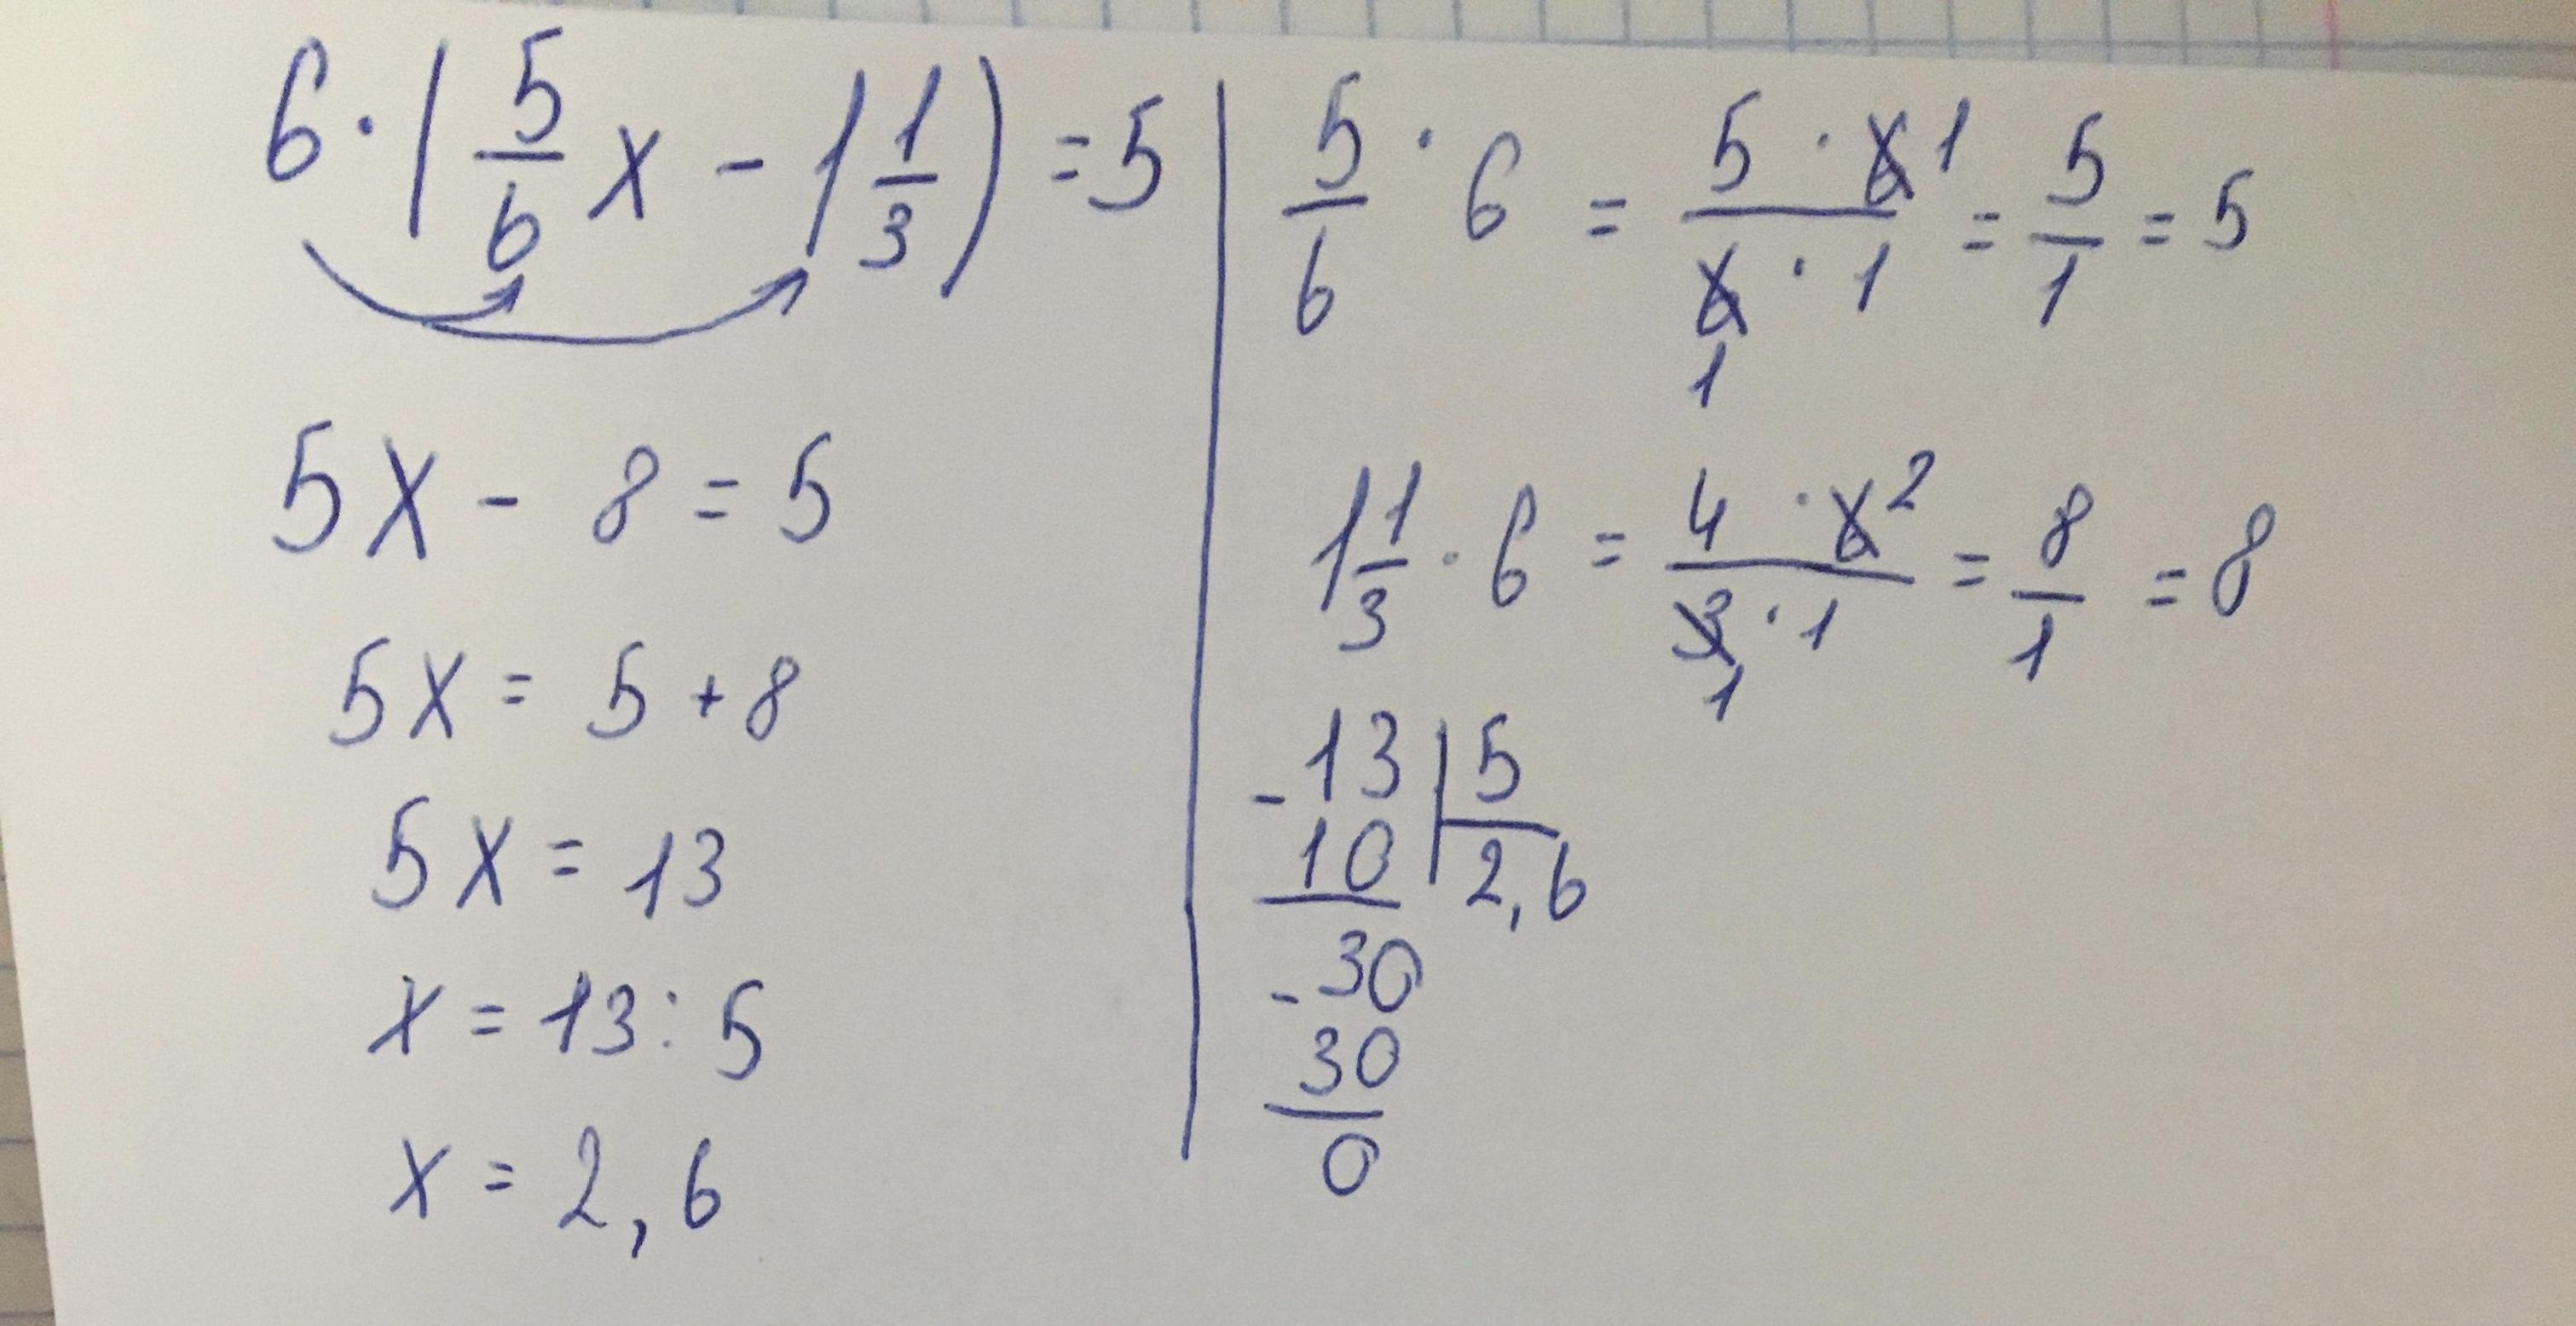 6 · (5/6 x - 1 1/3) = 5
5x - 8 = 5
5x = 5 + 8
5x = 13
x = 13 : 5
x = 2,6
5/6 · 6 = 5 · 6 1 / 6 · 1 = 5/1 = 5
1
1 1/3 · 6 = 4 · 6 2 / 3 · 1 = 8/1 = 8
1
- 13 | 5
10 | 2,6
- 30
30
0